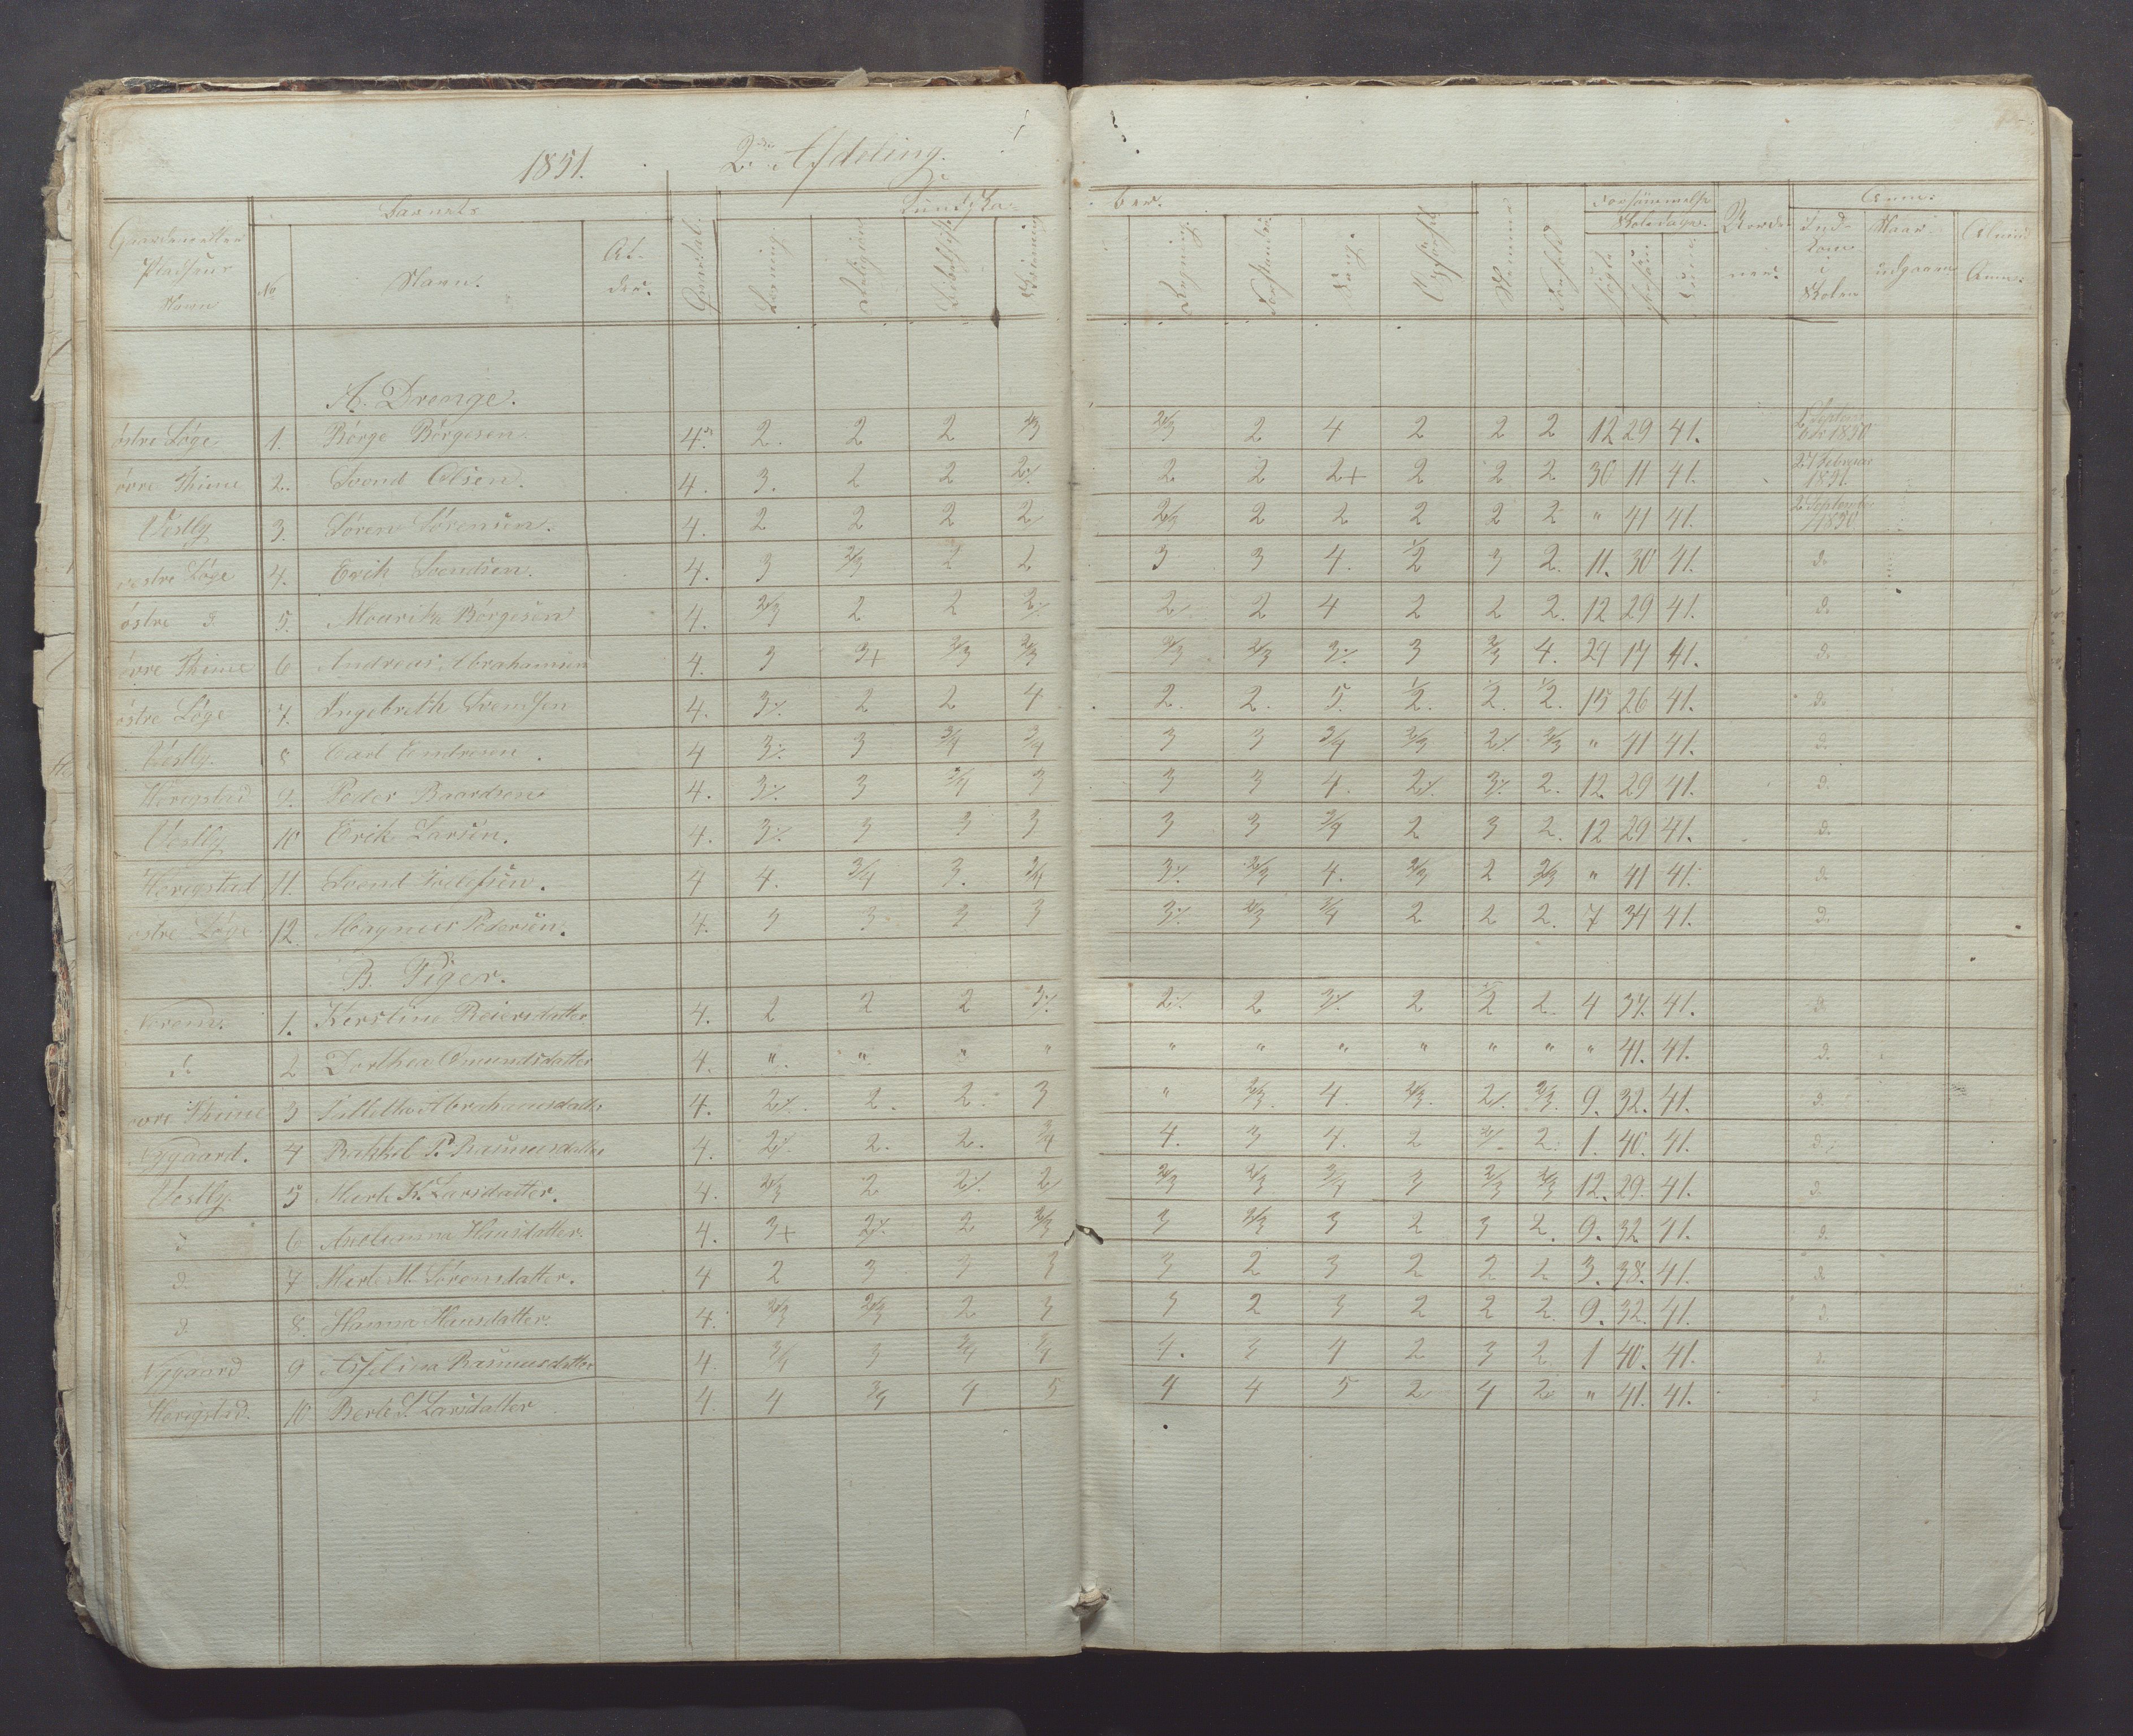 1851. 2den Afdeling.
Gaardens eller Pladsens Navn No Barnets Navn. Al-der. Qvartal. Kundska-ber. Læsning Religion Skrivning Regning Sang. Opførsel Forsømmelse Skoledage. Søgte Forsøm Summa Anm: Ind-kom i Skolen Naar udgaaen Almind. Anm.
A. Drenge.
østre Løge 1. Børge Børgesen 4de 2. 2 2 2/3 2/3 2 4 2 2 2 12 29 41. 2 Septem ber 1850
øvre Thime 2. Svend Olsen. 4. 3. 2 2 2% 2 2 2+ 2 2 2 30 11 41. 27 Februar 1851.
Vestly 3. Søren Sørensen. 4. 2 2 2 2 2/3 2 2 2 2 2 " 41 41. 2 September 1850
vestre Løge 4. Erik Svendsen. 4. 3 2/3 2 2 3 3 4. 1/2 3 2. 11. 30 41. do
østre do 5. Mouritz Børgesen 4. 2/3 2 2 2% 2 2 4 2 2 2. 12 29 41. do
øvre Thime 6 Andreas Abrahamsen 4. 3 3+ 2/3 2/3 2/3 2/3 3% 3 2/3 4. 29 17 41. do
østre Løge 7. Ingebreth Svendsen 4. 3% 2 2 4 2. 2. 5. 1/2. 2. 1/2. 15 26 41. do
Vestly. 8 Carl Endresen. 4 3% 3 3/4 3/4 3 3 3/4 2/3 2% 2/3 " 41 41. do
Herigstad 9. Peder Baardsen 4. 3% 3 3/4 3 3 3 4. 2% 3% 2. 12. 29 41. do
Vestly 10 Erik Larsen. 4. 3% 3 3 3 3 3 3/4 2 3 2. 12 29 41. do
Herigstad 11. Svend 4 4. 3/4 3. 3/4 3% 2/3 4. 2/3 2 2/3 " 41 41. do
østre Løge 12. Magnus Pedersen. 4. 3 3 3 3 3% 2/3 3/4 2 2 2. 7 34 41. do
B. Piger.
Norem. 1. Kerstine Reiersdatter 4. 2 2 2 3% 2% 2 3% 2 1/2 2 4 37. 41. do
do 2 Dorthea Omundsdatter 4. " " " " " " " " " " " 41. 41. do
øvre Thime 3 Abrahamsdatter 4. 2% 2. 2. 3 " 2/3 4. 2/3. 2% 2/3. 9. 32. 41. do
Nygaard. 4 Rakkel P. Rasmusdatter 4. 2% 2. 2. 3/4 4. 3 4. 2 2. 1. 40. 41. do
Vestly. 5 Merte K. Larsdatter. 4. 2/3 2 2% 2 2/3 2/3 3/4 3 2/3 2/3 12. 29. 41. do
do 6 Andreanna Hansdatter. 4. 3+ 2% 2 2/3 3 2/3 3 2 3 2. 9. 32 41. do
do 7 Merte M. Sørensdatter. 4 2 3 3 3 3 2 3 2 2 2 3. 38. 41. do
do 8. Hanna Hansdatter. 4. 2/3 2/3 2 3 3 2 3 2 2 2. 9. 32. 41. do
Nygaard 9 Asseline Rasmusdatter 4. 3/4 3 3/4 3/4 4. 3 4 2 3 2. 1 40. 41. do
Herigstad. 10 Berte S. Larsdatter 4. 4 3/4 4 5 4 4 5 2 4 2 " 41. 41. do